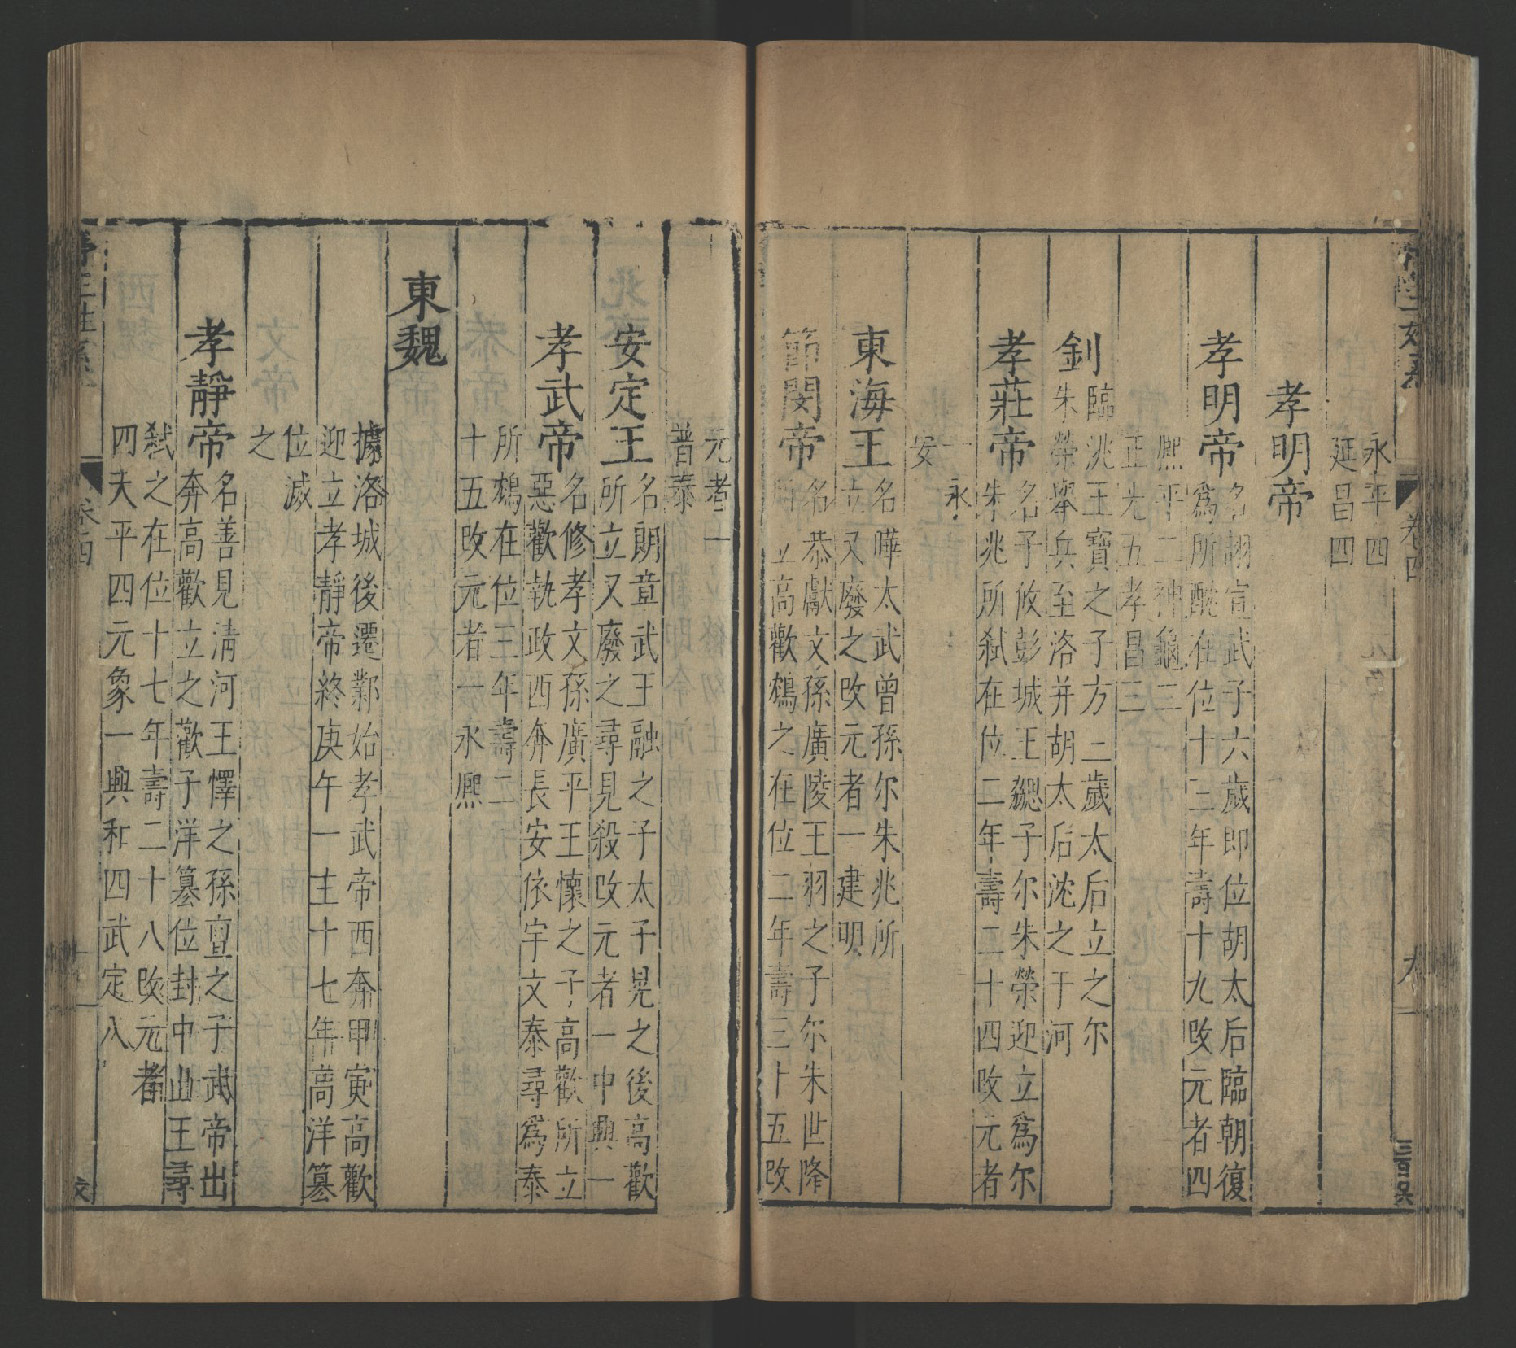 永平四
延昌四
孝明帝
孝明帝
名詡宣武子六歲即位胡太后臨朝復
爲所酖在位十三年壽十九改元者四
熙平二神龜二
正光五孝昌三
釗
臨洮王寶之子方二歲太后立之尔
朱榮舉兵至洛并胡太后沈之于河
孝莊帝
名子攸彭城王勰子尔朱榮迎立爲尔
朱兆所弑在位二年壽二十四改元者
一永
安
東海王
名曄太武曾孫尔朱兆所
立又廢之改元者一建明
節閔帝
名恭獻文孫廣陵王羽之子尔朱世隆
立高歡鴆之在位二年壽三十五改
元者一
普泰
安定王
名朗章武王融之子太子晃之後高歡
所立又廢之尋見殺改元者一中興一
孝武帝
名修孝文孫廣平王懷之子高歡所立
惡歡執政西奔長安依宇文泰尋爲泰
所鴆在位三年壽二
十五改元者一永熙
東魏
據洛城後遷鄴始孝武帝西奔甲寅高歡
迎立孝靜帝終庚午一主十七年高洋篡
位滅
之
孝靜帝
名善見清河王懌之孫亶之子武帝出
奔高歡立之歡子洋篡位封中山王尋
弑之在位十七年壽二十八改元者
四天平四元象一興和四武定八
卷四